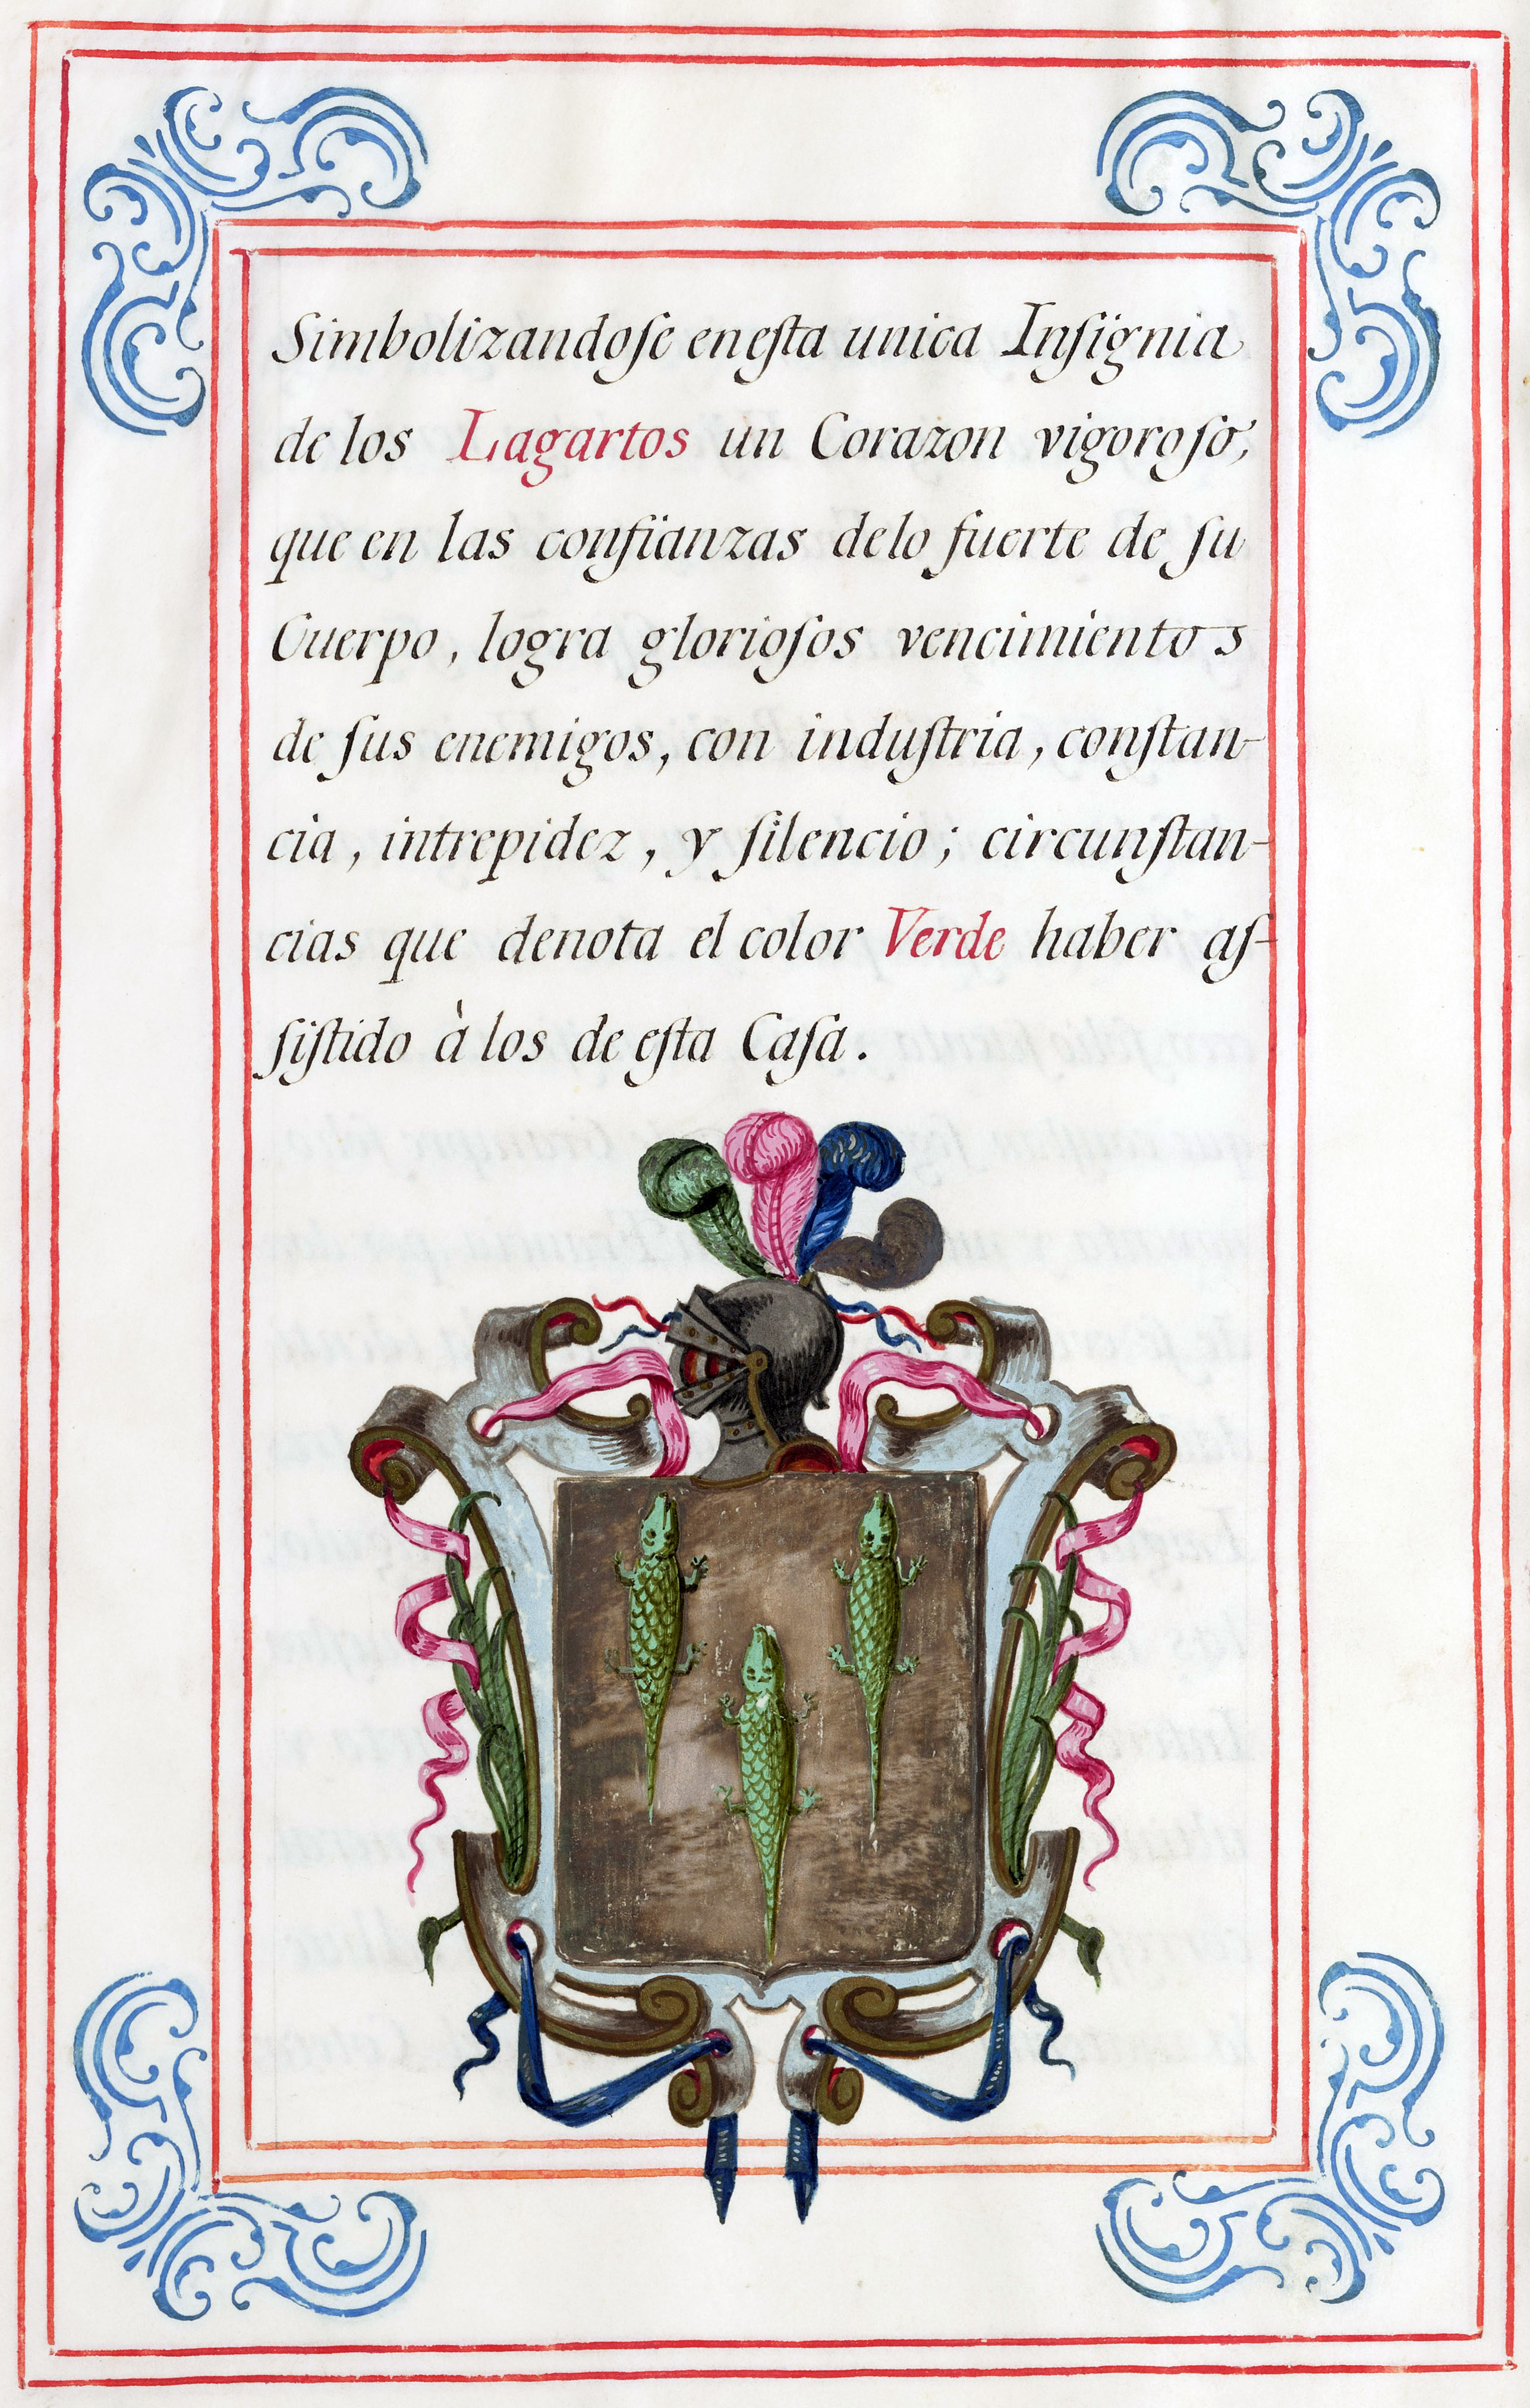 Simbolizandoſe eneſta unica Inſignia
de los Lagartos un Corazon vigoroſo,
que en las confianzas delo fuerte de ſu
Cuerpo, logra glorioſos vencimientos
de ſus enemigos, con induſtria, conſtan-
cia, intrepidez, y ſilencio; circunſtan-
cias que denota el color Verde haber aſ-
ſiſtido à los de eſta Caſa.